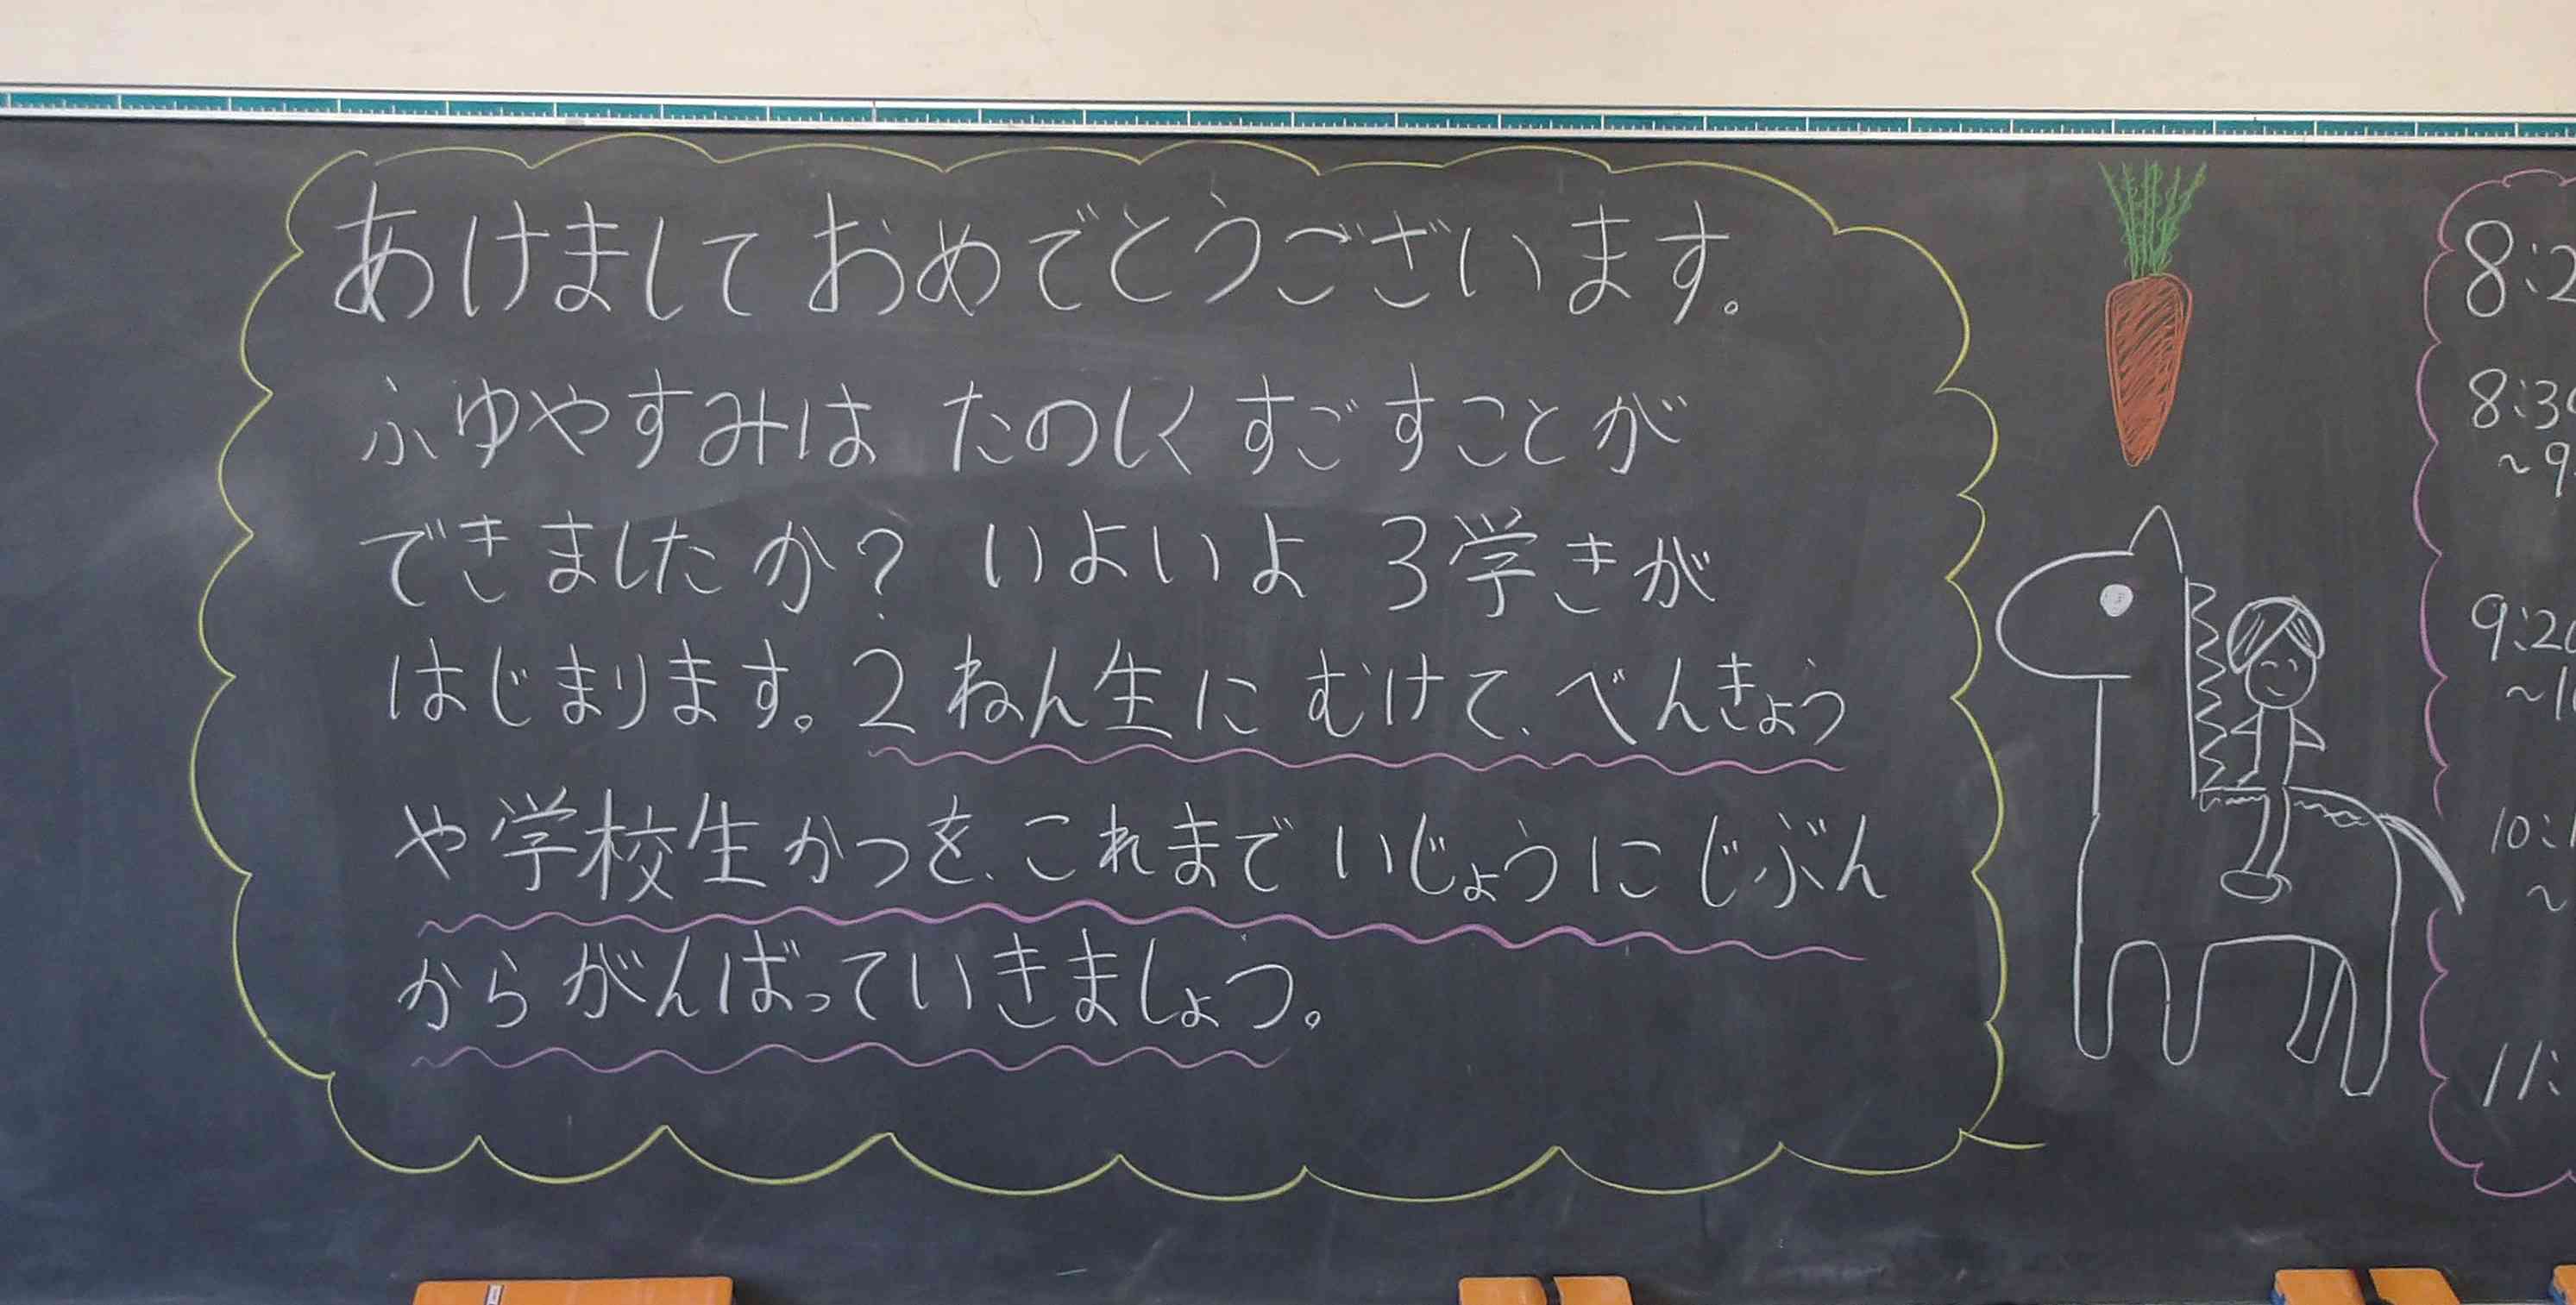 あけまして おめでとうございます。
ふゆやすみは たのしく すごすことが
できましたか？ いよいよ 3学きが
はじまります。2ねん生に むけて、べんきょう
や学校生かつを、これまで いじょうに じぶん
から がんばっていきましょう。
8:2
8:30
~9
9:20
~1
10:1
~
11: